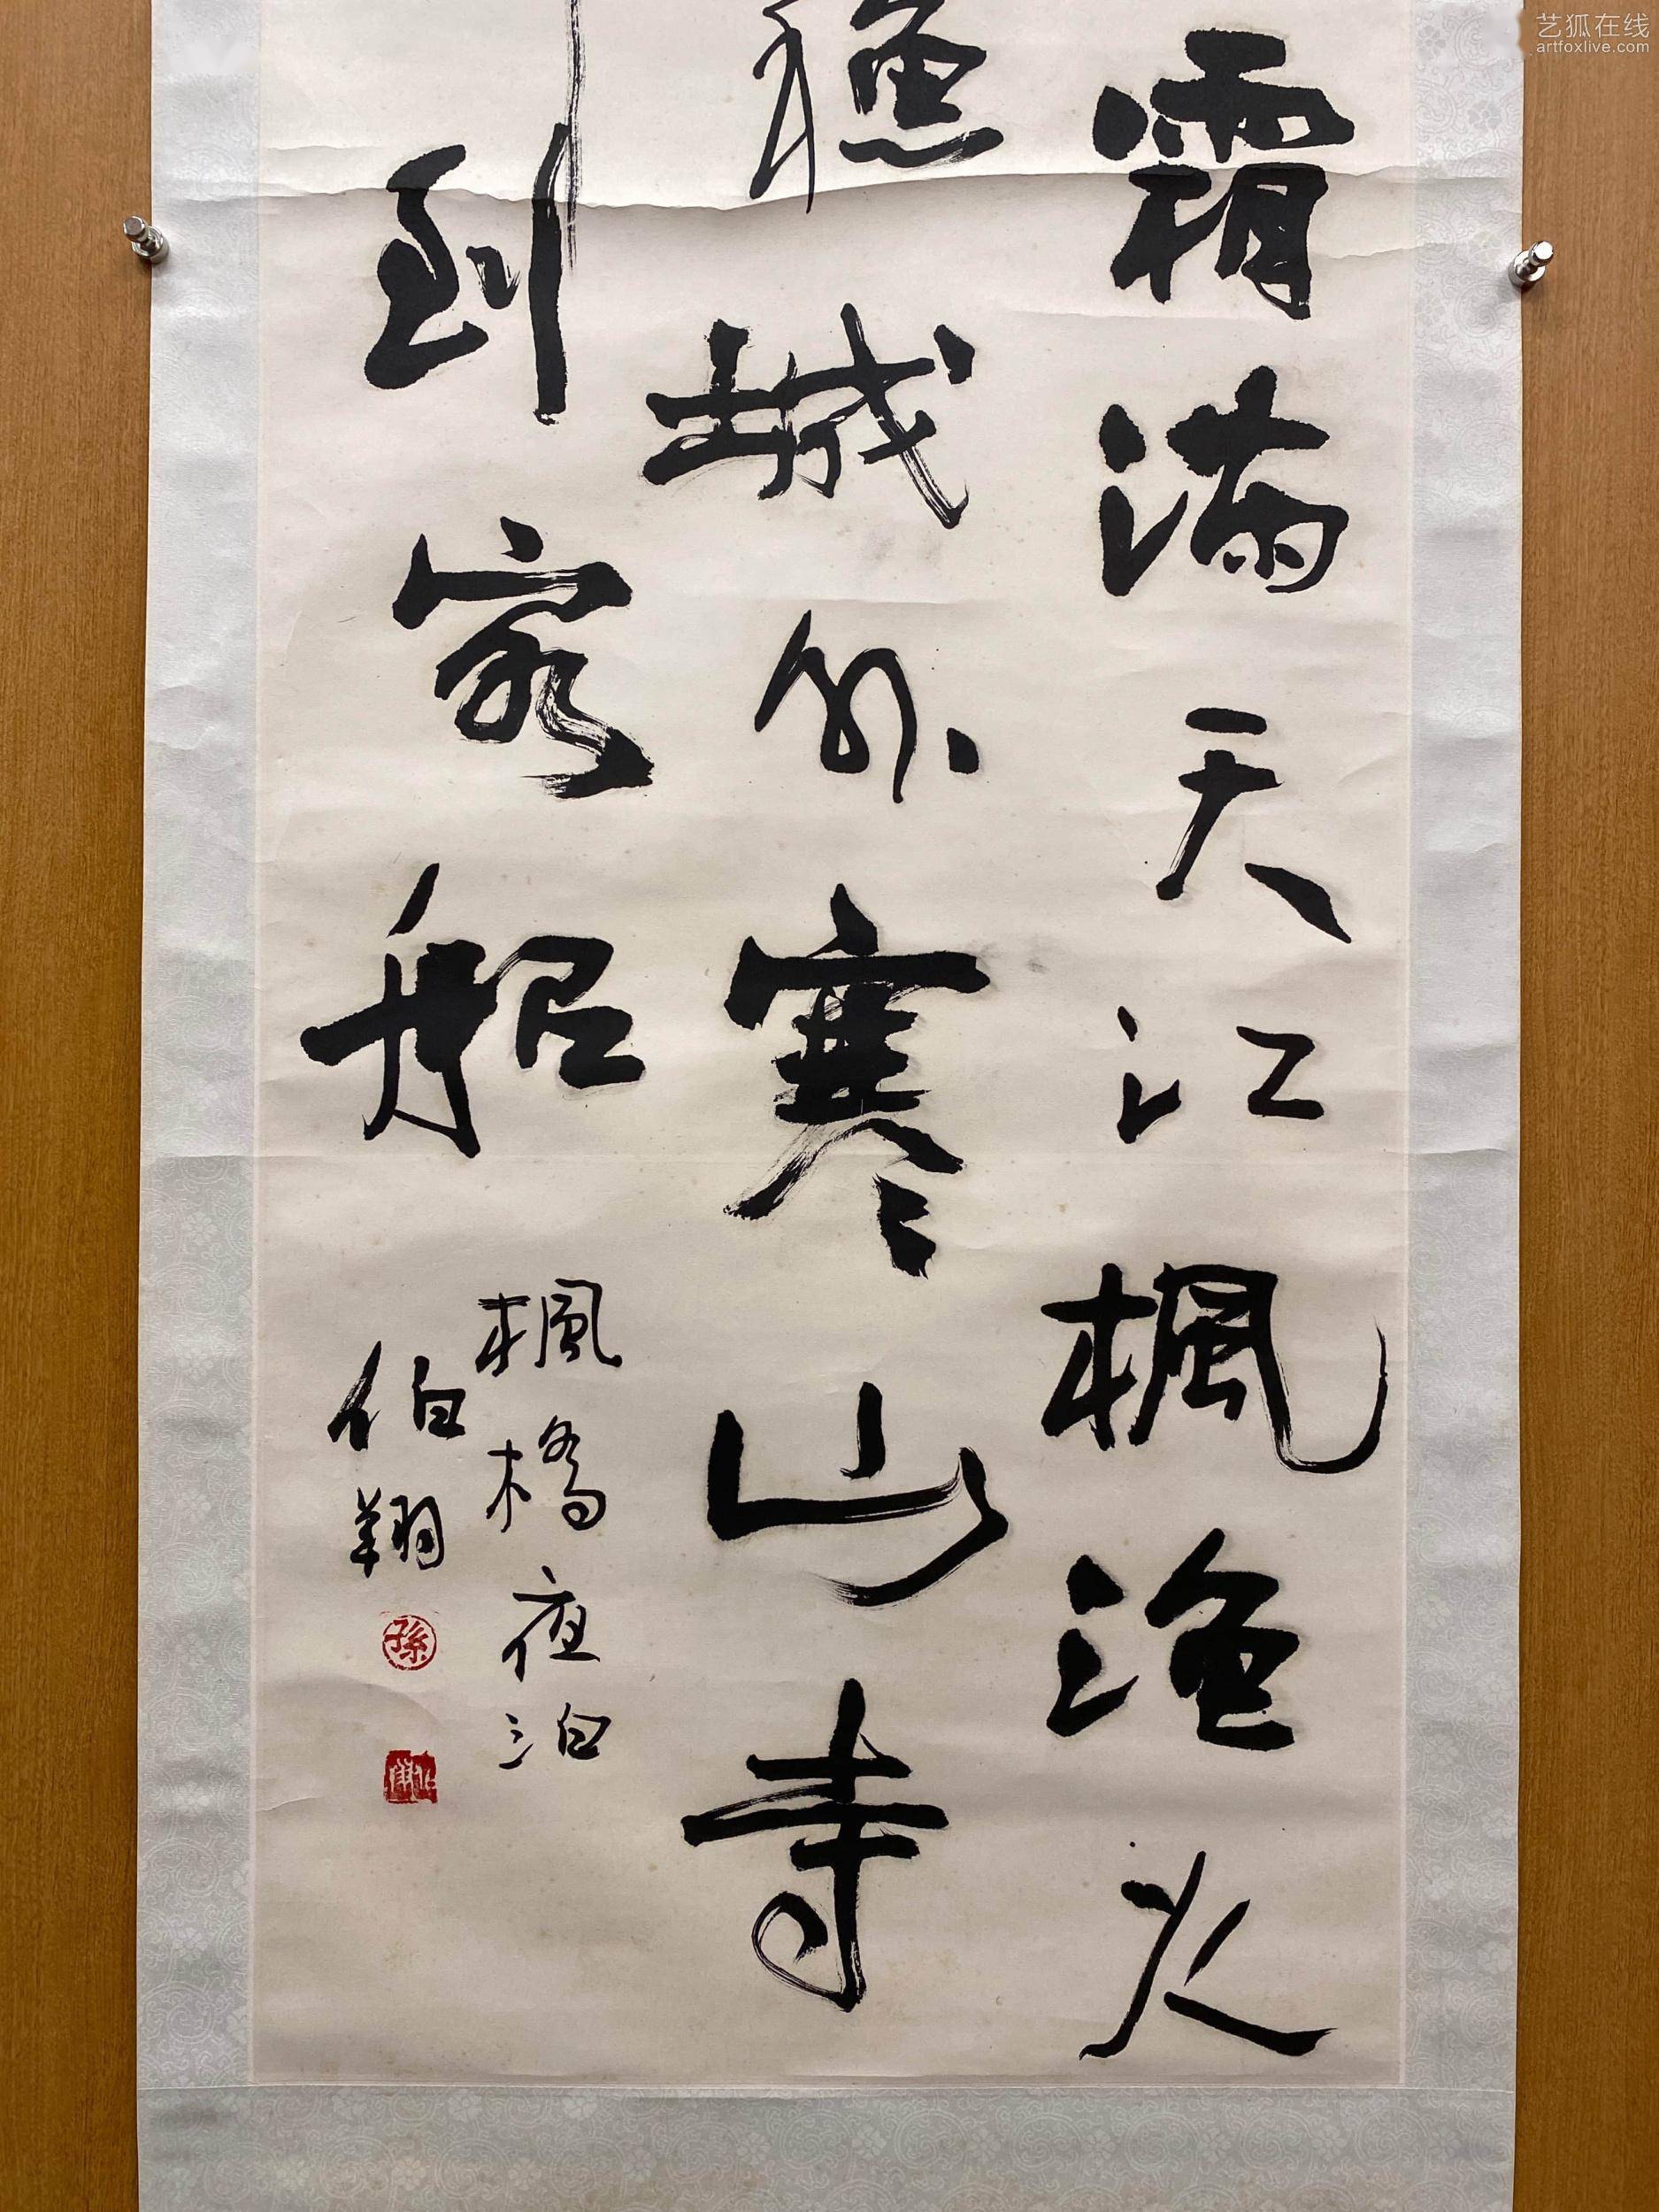 霜滿天江楓漁火
穌城外寒山寺
到客船
楓橋夜泊
伯翔
孫
艺狐在线
artfoxlive.com